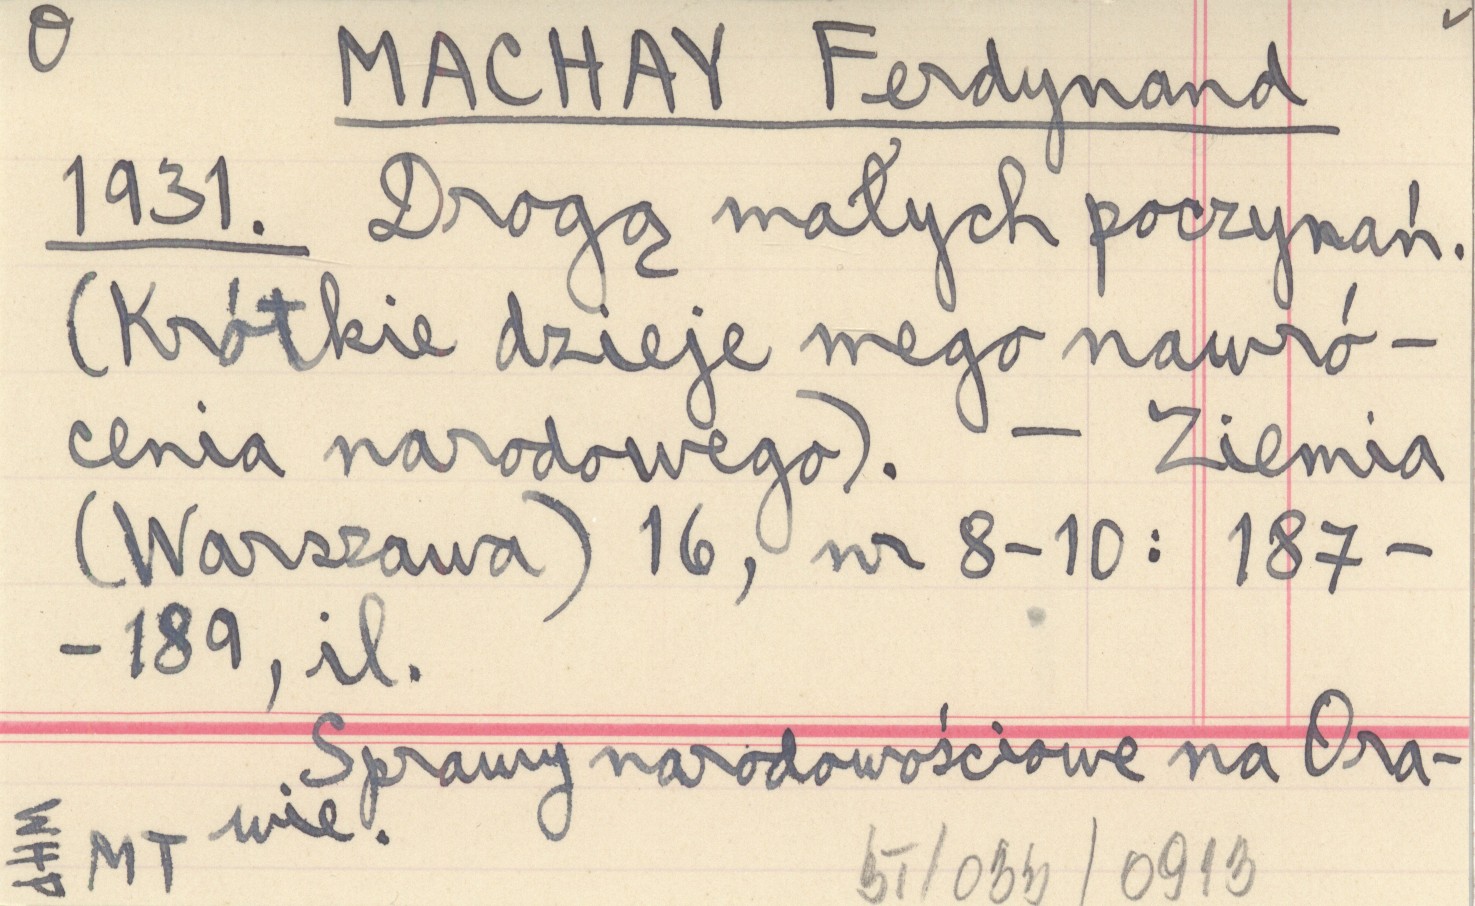 O
MACHAY Ferdynand
1931. Drogą małych poczynań.
(Krótkie dzieje mego nawró-
cenia narodowego). — Ziemia
(Warszawa) 16, nr 8-10: 187-
-189, il.
Sprawy narodowościowe na Ora-
wie.
MT